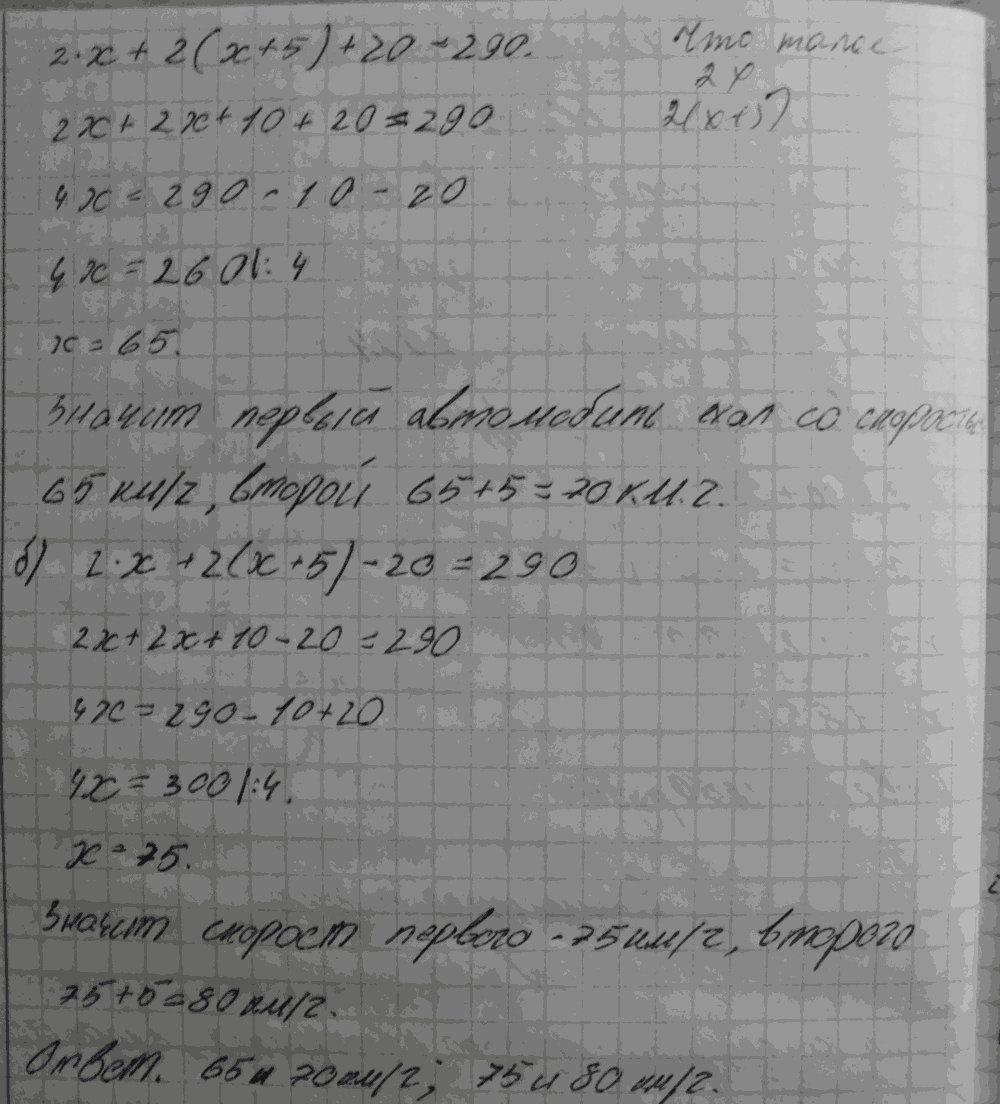 2·x + 2(x+5)+20 = 290.
Что такое
2x
2(x+5)
2x + 2x + 10 + 20 = 290
4x = 290 - 10 - 20
4x = 260 |: 4
x = 65.
Значит первый автомобиль ехал со скоростью
65 км/ч, второй 65+5=70 к.м.ч.
б) 2·x + 2(x+5) - 20 = 290
2x + 2x + 10 - 20 = 290
4x = 290 - 10 + 20
4x = 300 |: 4.
x = 75.
Значит скорост первого - 75 км/ч, второго
75+5=80 км/ч.
Ответ. 65 и 70 км/ч; 75 и 80 км/ч.